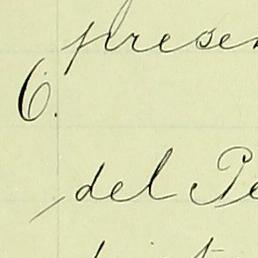 presen
6.
del Pe